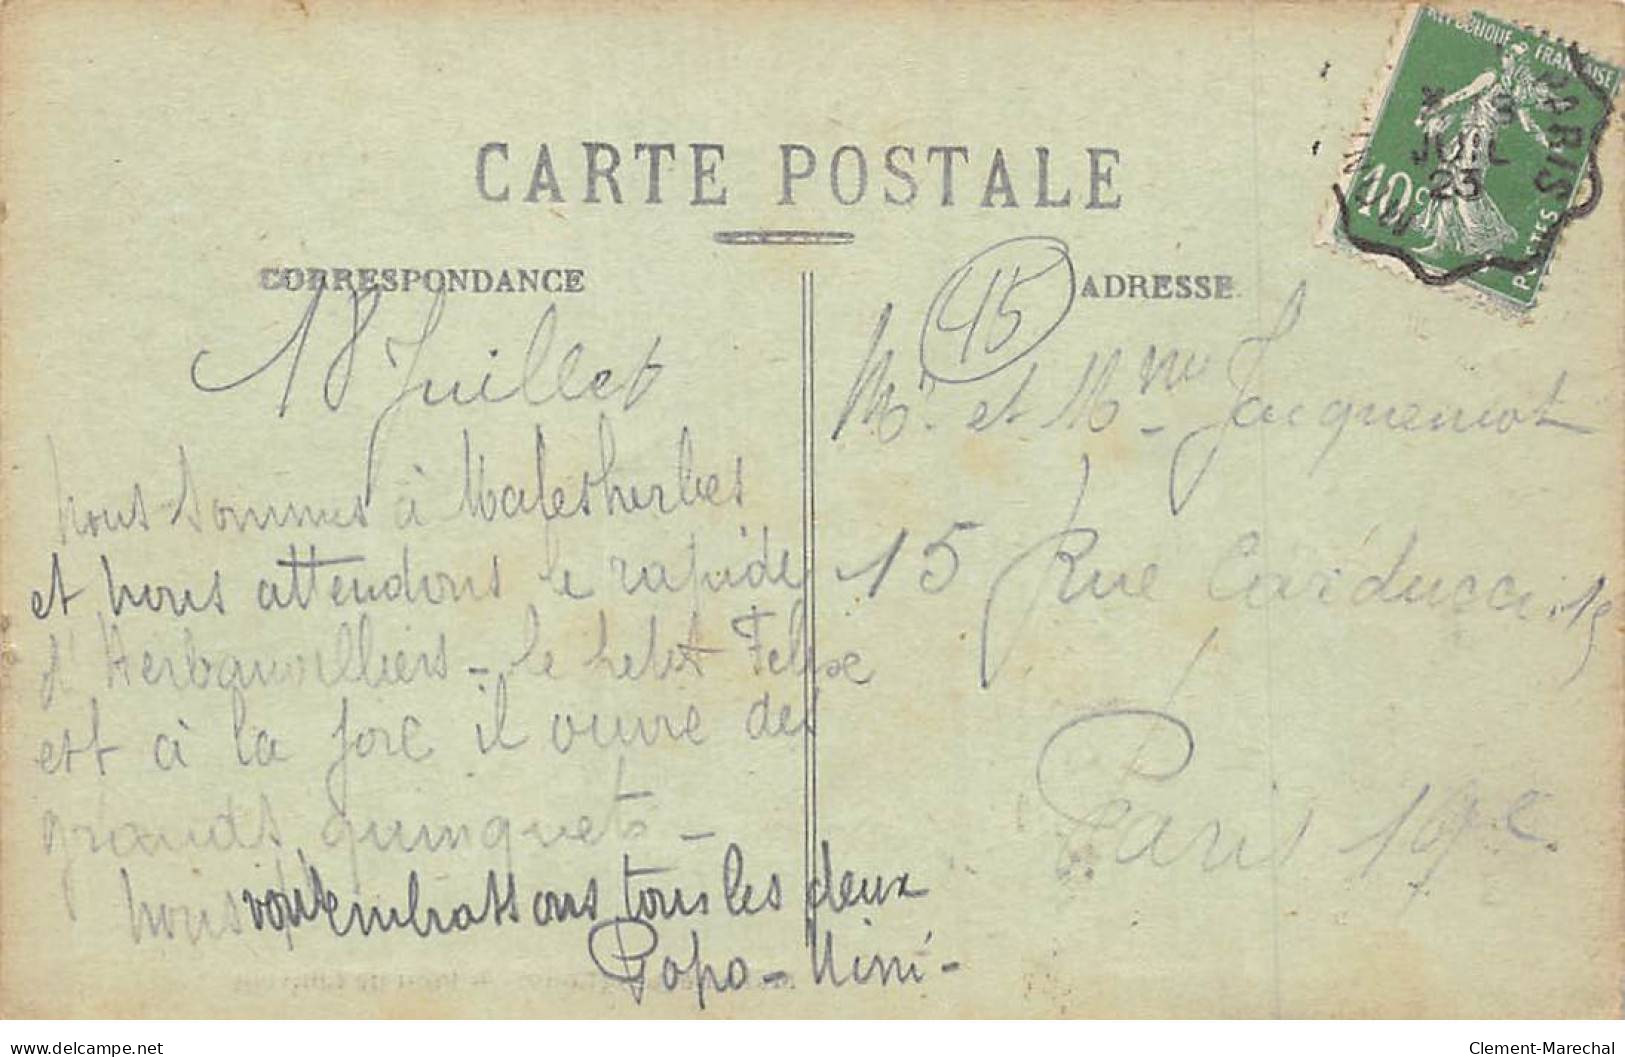 CARTE POSTALE
CORRESPONDANCE
18 Juillet
Nous sommes à Malesherbes
et nous attendons le rapide
d'Herbauvilliers - le petit Felix
est à la joie il ouvre des
grands quinquets -
nous vous embrassons tous les deux
Popo - Nini -
ADRESSE
45
Mr. et Mme Jacqueminot
15 Rue Carducci 15
Paris 19e.
REPUBLIQUE FRANCAISE
10c
POSTES
PARIS
JUIL
23
delcampe.net
Clement-Marechal